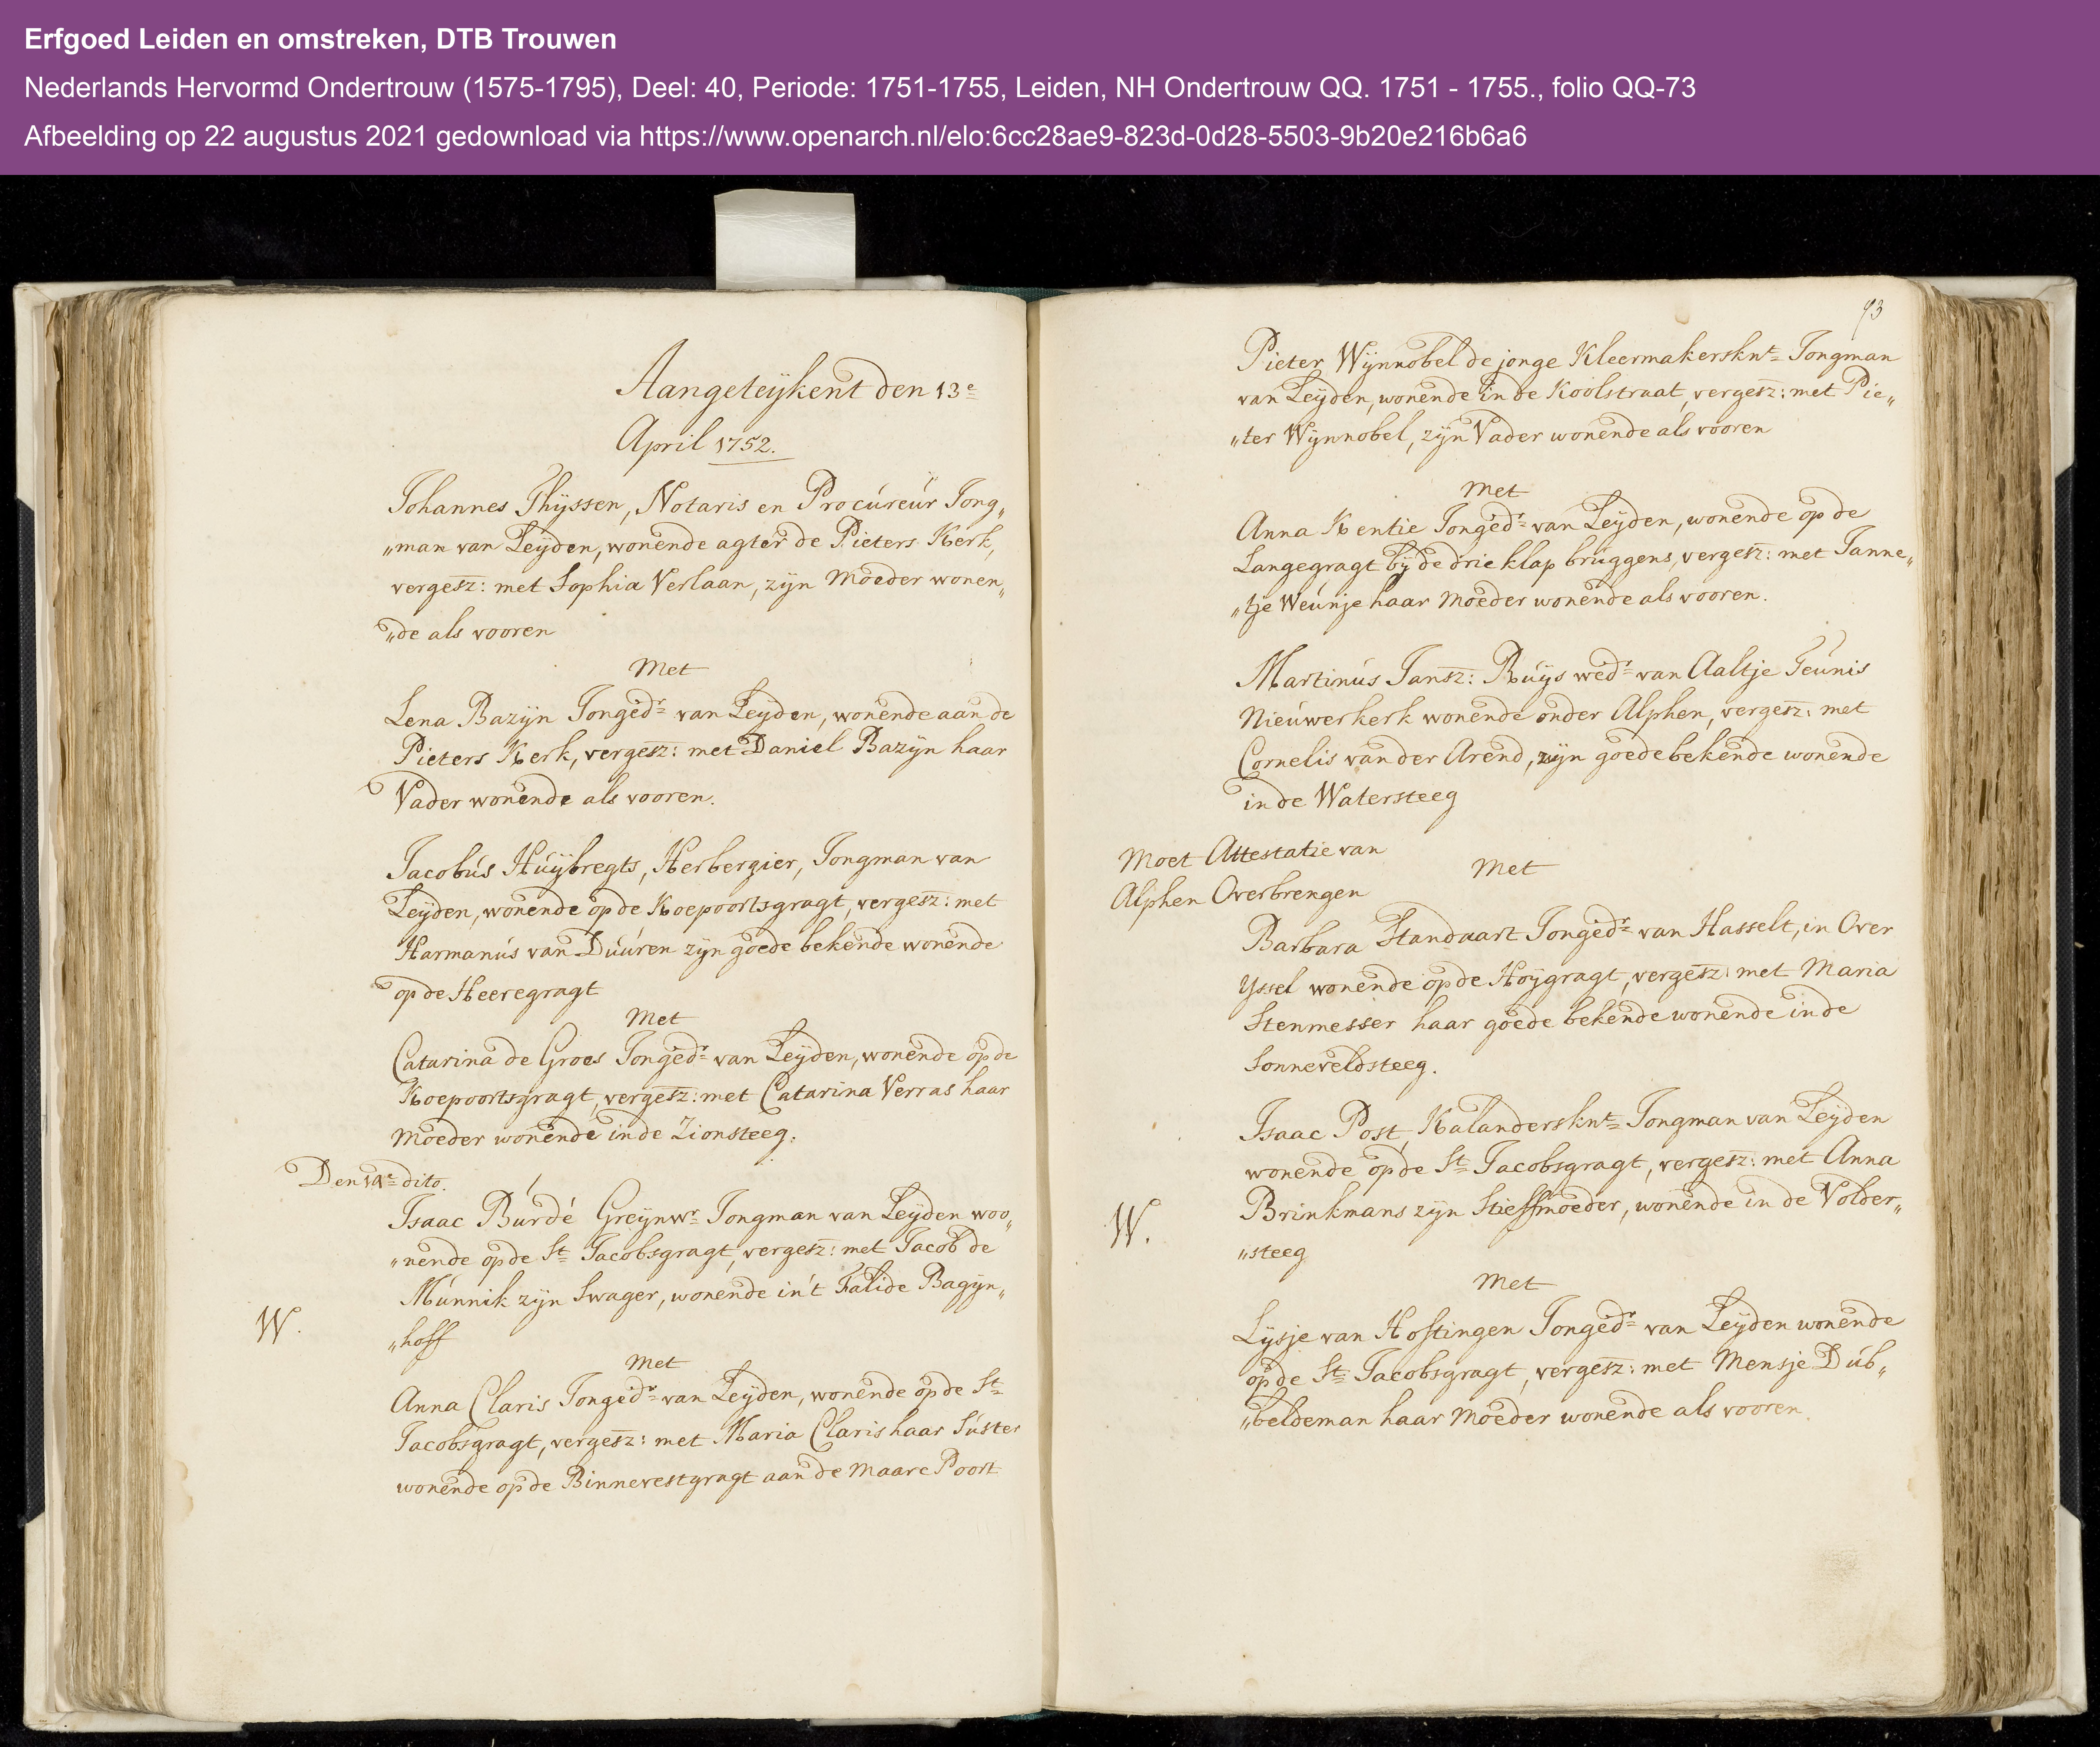 Erfgoed Leiden en omstreken, DTB Trouwen
Nederlands Hervormd Ondertrouw (1575-1795), Deel: 40, Periode: 1751-1755, Leiden, NH Ondertrouw QQ. 1751 - 1755., folio QQ-73
Afbeelding op 22 augustus 2021 gedownload via https://www.openarch.nl/elo:6cc28ae9-823d-0d28-5503-9b20e216b6a6
Aangeteijkent den 13e
April 1752.
Johannes Thijssen, Notaris en Procureur Jong„
„man van Leijden, wonende agter de Pieters Kerk,
vergesz: met Sophia Verlaan, zijn Moeder wonen„
„de als vooren
Met
Lena Bazijn Jonged.r van Leijden, wonende aan de
Pieters Kerk, vergesz: met Daniel Bazijn haar
Vader wonende als vooren.
Jacobus Huijbregts, Herbergier, Jongman van
Leijden, wonende op de Koepoortsgragt, vergesz: met
Harmanus van Duuren zijn goede bekende wonende
op de Heeregragt
Met
Catarina de Groes Jonged.r van Leijden, wonende op de
Koepoortsgragt, vergesz: met Catarina Verras haar
Moeder wonende in de Zionsteeg.
Den 14e dito.
Isaac Burdé Greijnwr. Jongman van Leijden woo„
„nende op de St. Jacobsgragt, vergesz: met Jacob de
Munnik zijn Swager, wonende in't Falide Bagijn„
W.
„hoff
Met
Anna Claris Jonged.r van Leijden, wonende op de St.
Jacobsgragt, vergesz: met Maria Claris haar Suster
wonende op de Binnevestgragt aan de Maare Poort
73
Pieter Wijnnobel de jonge Kleermakersknt. Jongman
van Leijden, wonende in de Koolstraat, vergesz: met Pie„
„ter Wijnnobel, zijn Vader wonende als vooren
Met
Anna Kentie Jonged.r van Leijden, wonende op de
Langegragt bij de drie klap bruggens, vergesz: met Janne„
„tje Weunje haar Moeder wonende als vooren.
Martinus Jansz: Ruijs wed.r van Aaltje Teunis
Nieuwerkerk wonende onder Alphen, vergesz: met
Cornelis van der Arend, zijn goede bekende wonende
in de Watersteeg
Moet Attestatie van
Alphen Overbrengen
Met
Barbara Standaart Jonged.r van Hasselt, in Over
IJssel wonende op de Hoijgragt, vergesz: met Maria
Stenmesser haar goede bekende wonende in de
Sonneveldsteeg.
Isaac Post, Kalandersknt. Jongman van Leijden
wonende op de St. Jacobsgragt, vergesz: met Anna
Brinkmans zijn Stieffmoeder, wonende in de Volder„
W.
„steeg
Met
Lijsje van Hostingen Jonged.r van Leijden wonende
op de St. Jacobsgragt, vergesz: met Mensje Dub„
„beldeman haar Moeder wonende als vooren.